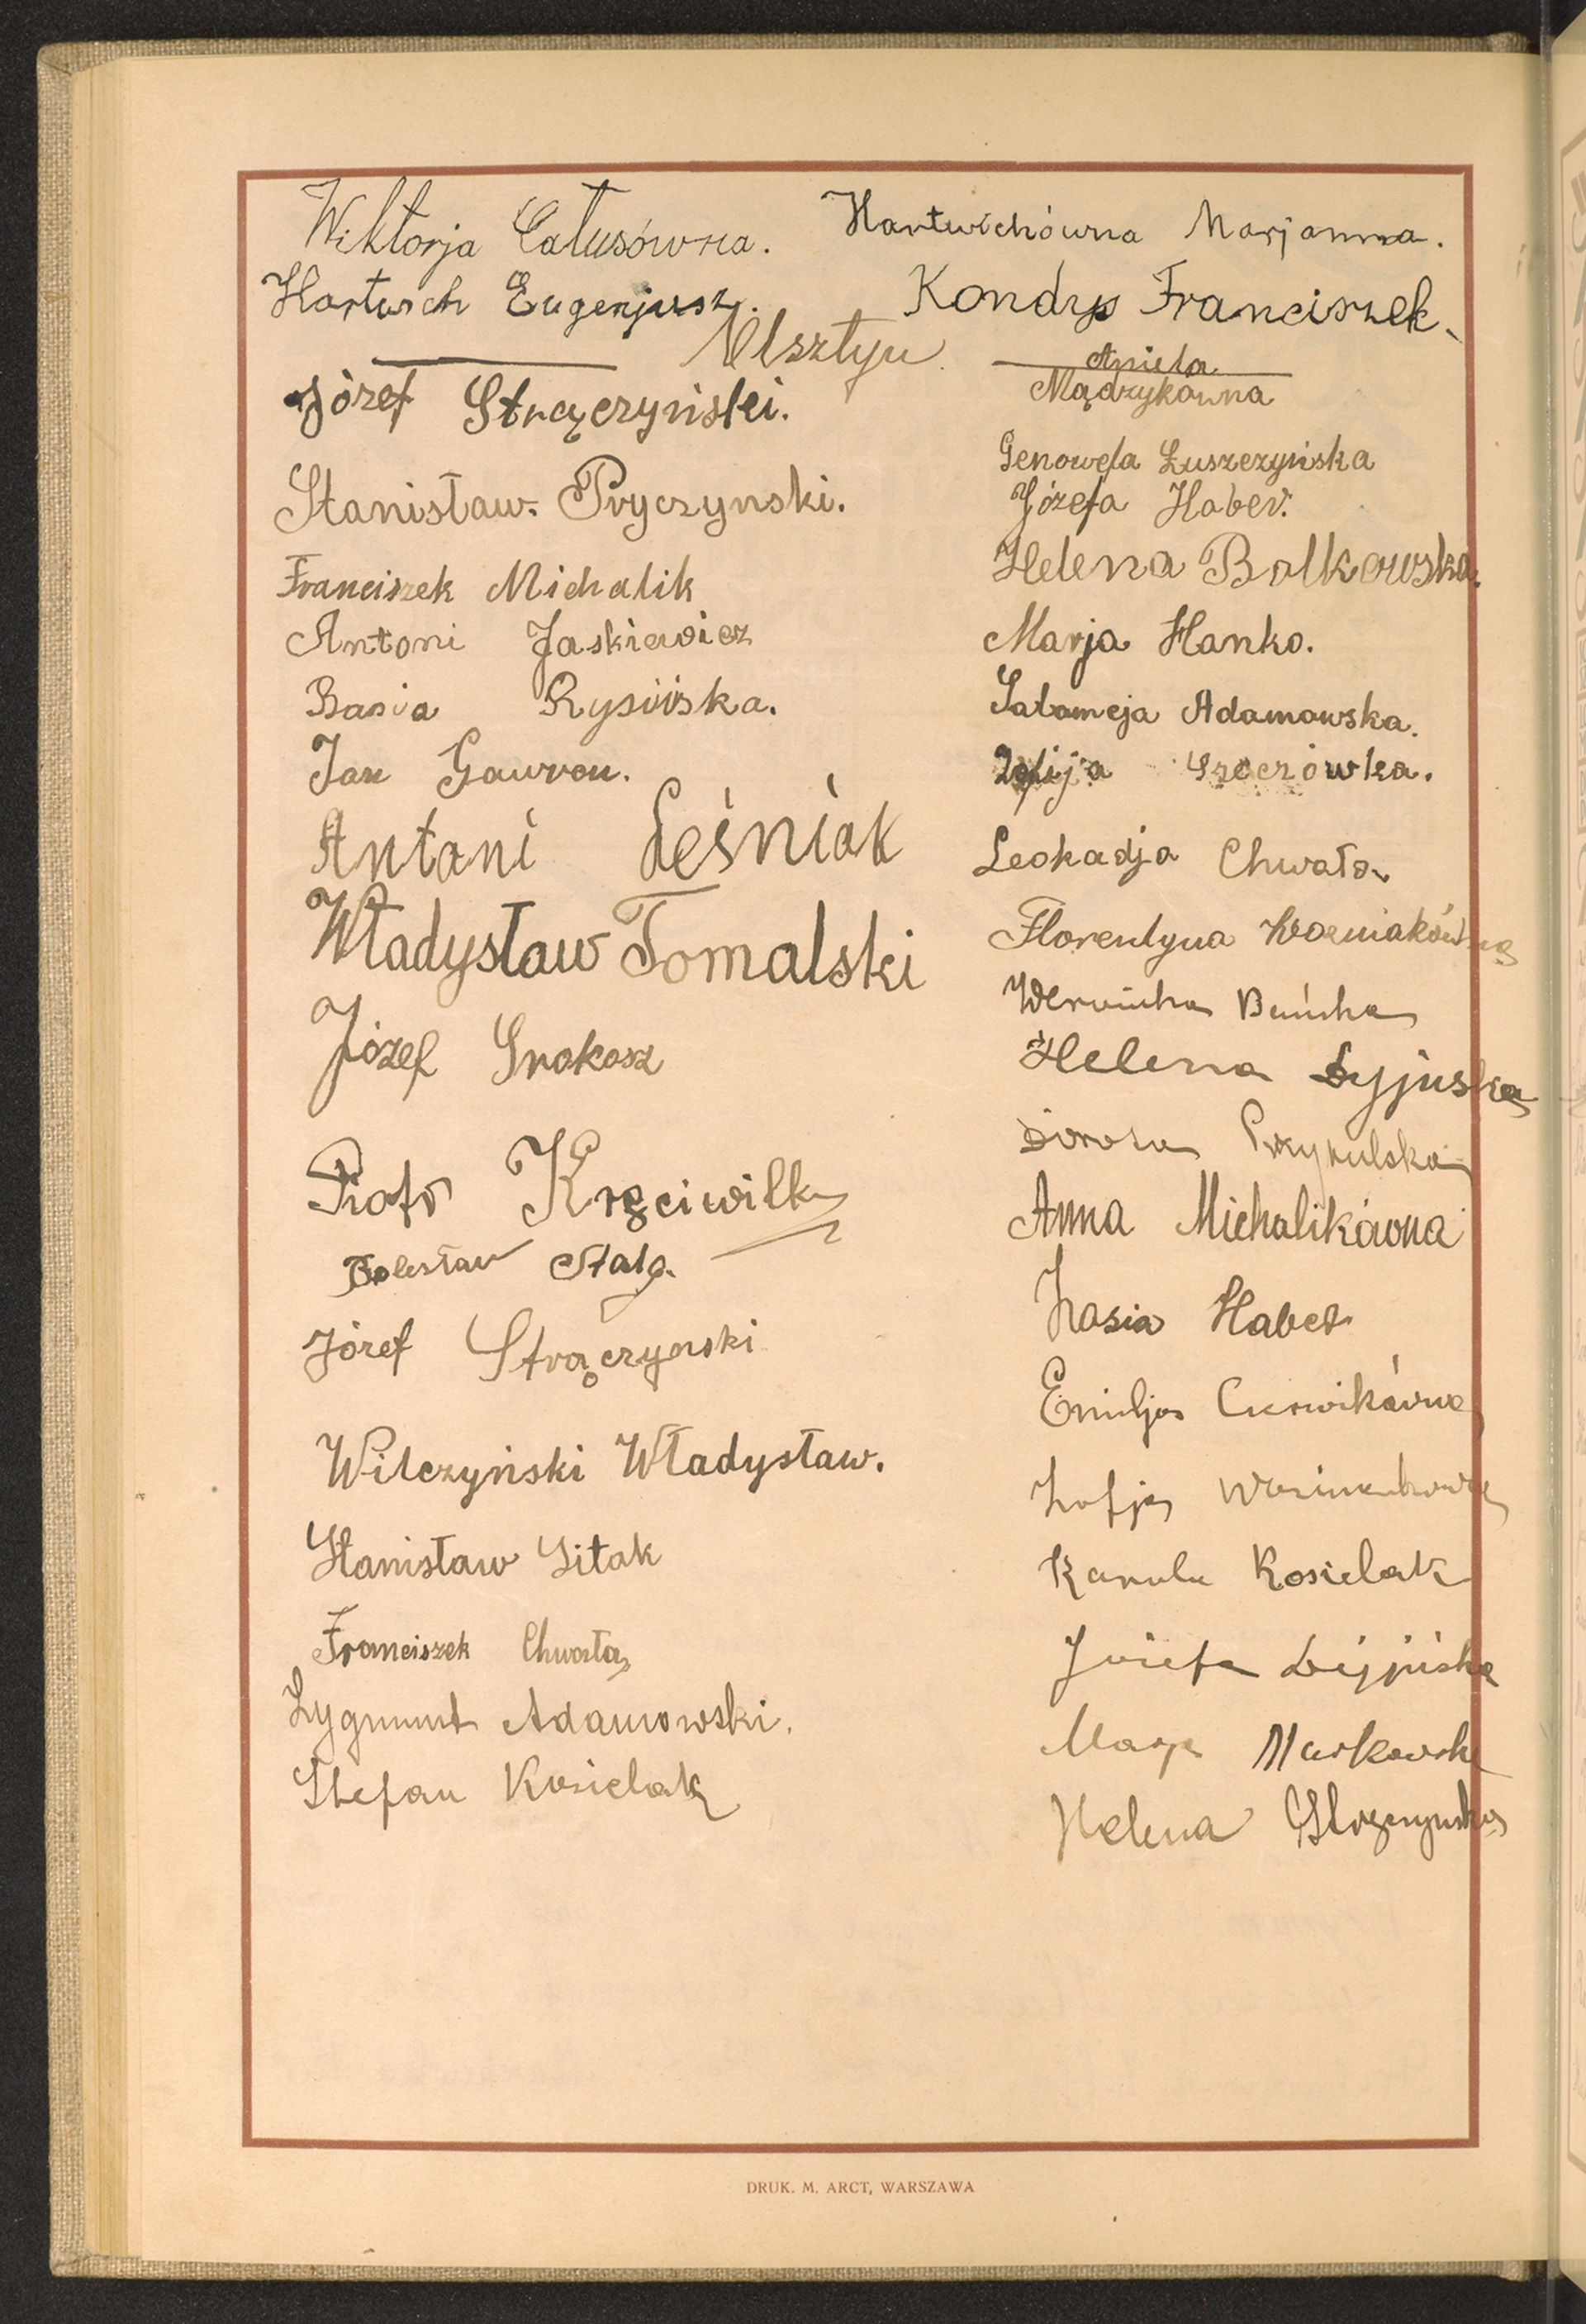 Wiktorja Całusówna.
Hartwichówna Marjanna.
Hartwich Eugenjusz.
Kondys Franciszek.
Olsztyn
Józef Strączyński.
Stanisław Pryczynski.
Franciszek Michalik
Antoni Jaskiewicz
Basia Rysińska.
Jan Gawron.
Antoni Leśniak
Władysław Tomalski
Józef Srokosz
Piotr Kręciwilk
Bolesław
Józef Strączynski
Wilczyński Władysław.
Stanisław Sitak
Franciszek Chwała
Zygmunt Adamowski.
Stefan Kosielak
Aniela
Mądrzykówna
Genowefa Łuszczyńska
Józefa Haber.
Helena Bolkowska.
Marja Hanko.
Salomeja Adamowska.
Zofija
Leokadja Chwała
Florentyna Woźniakówna
Helena Łyjińska
Anna Michalikówna
Kasia Haber
Emilja
Zofja
Karola Kosielak
Józefa
Marja Markowska
Helena Strączyńska
DRUK. M. ARCT, WARSZAWA